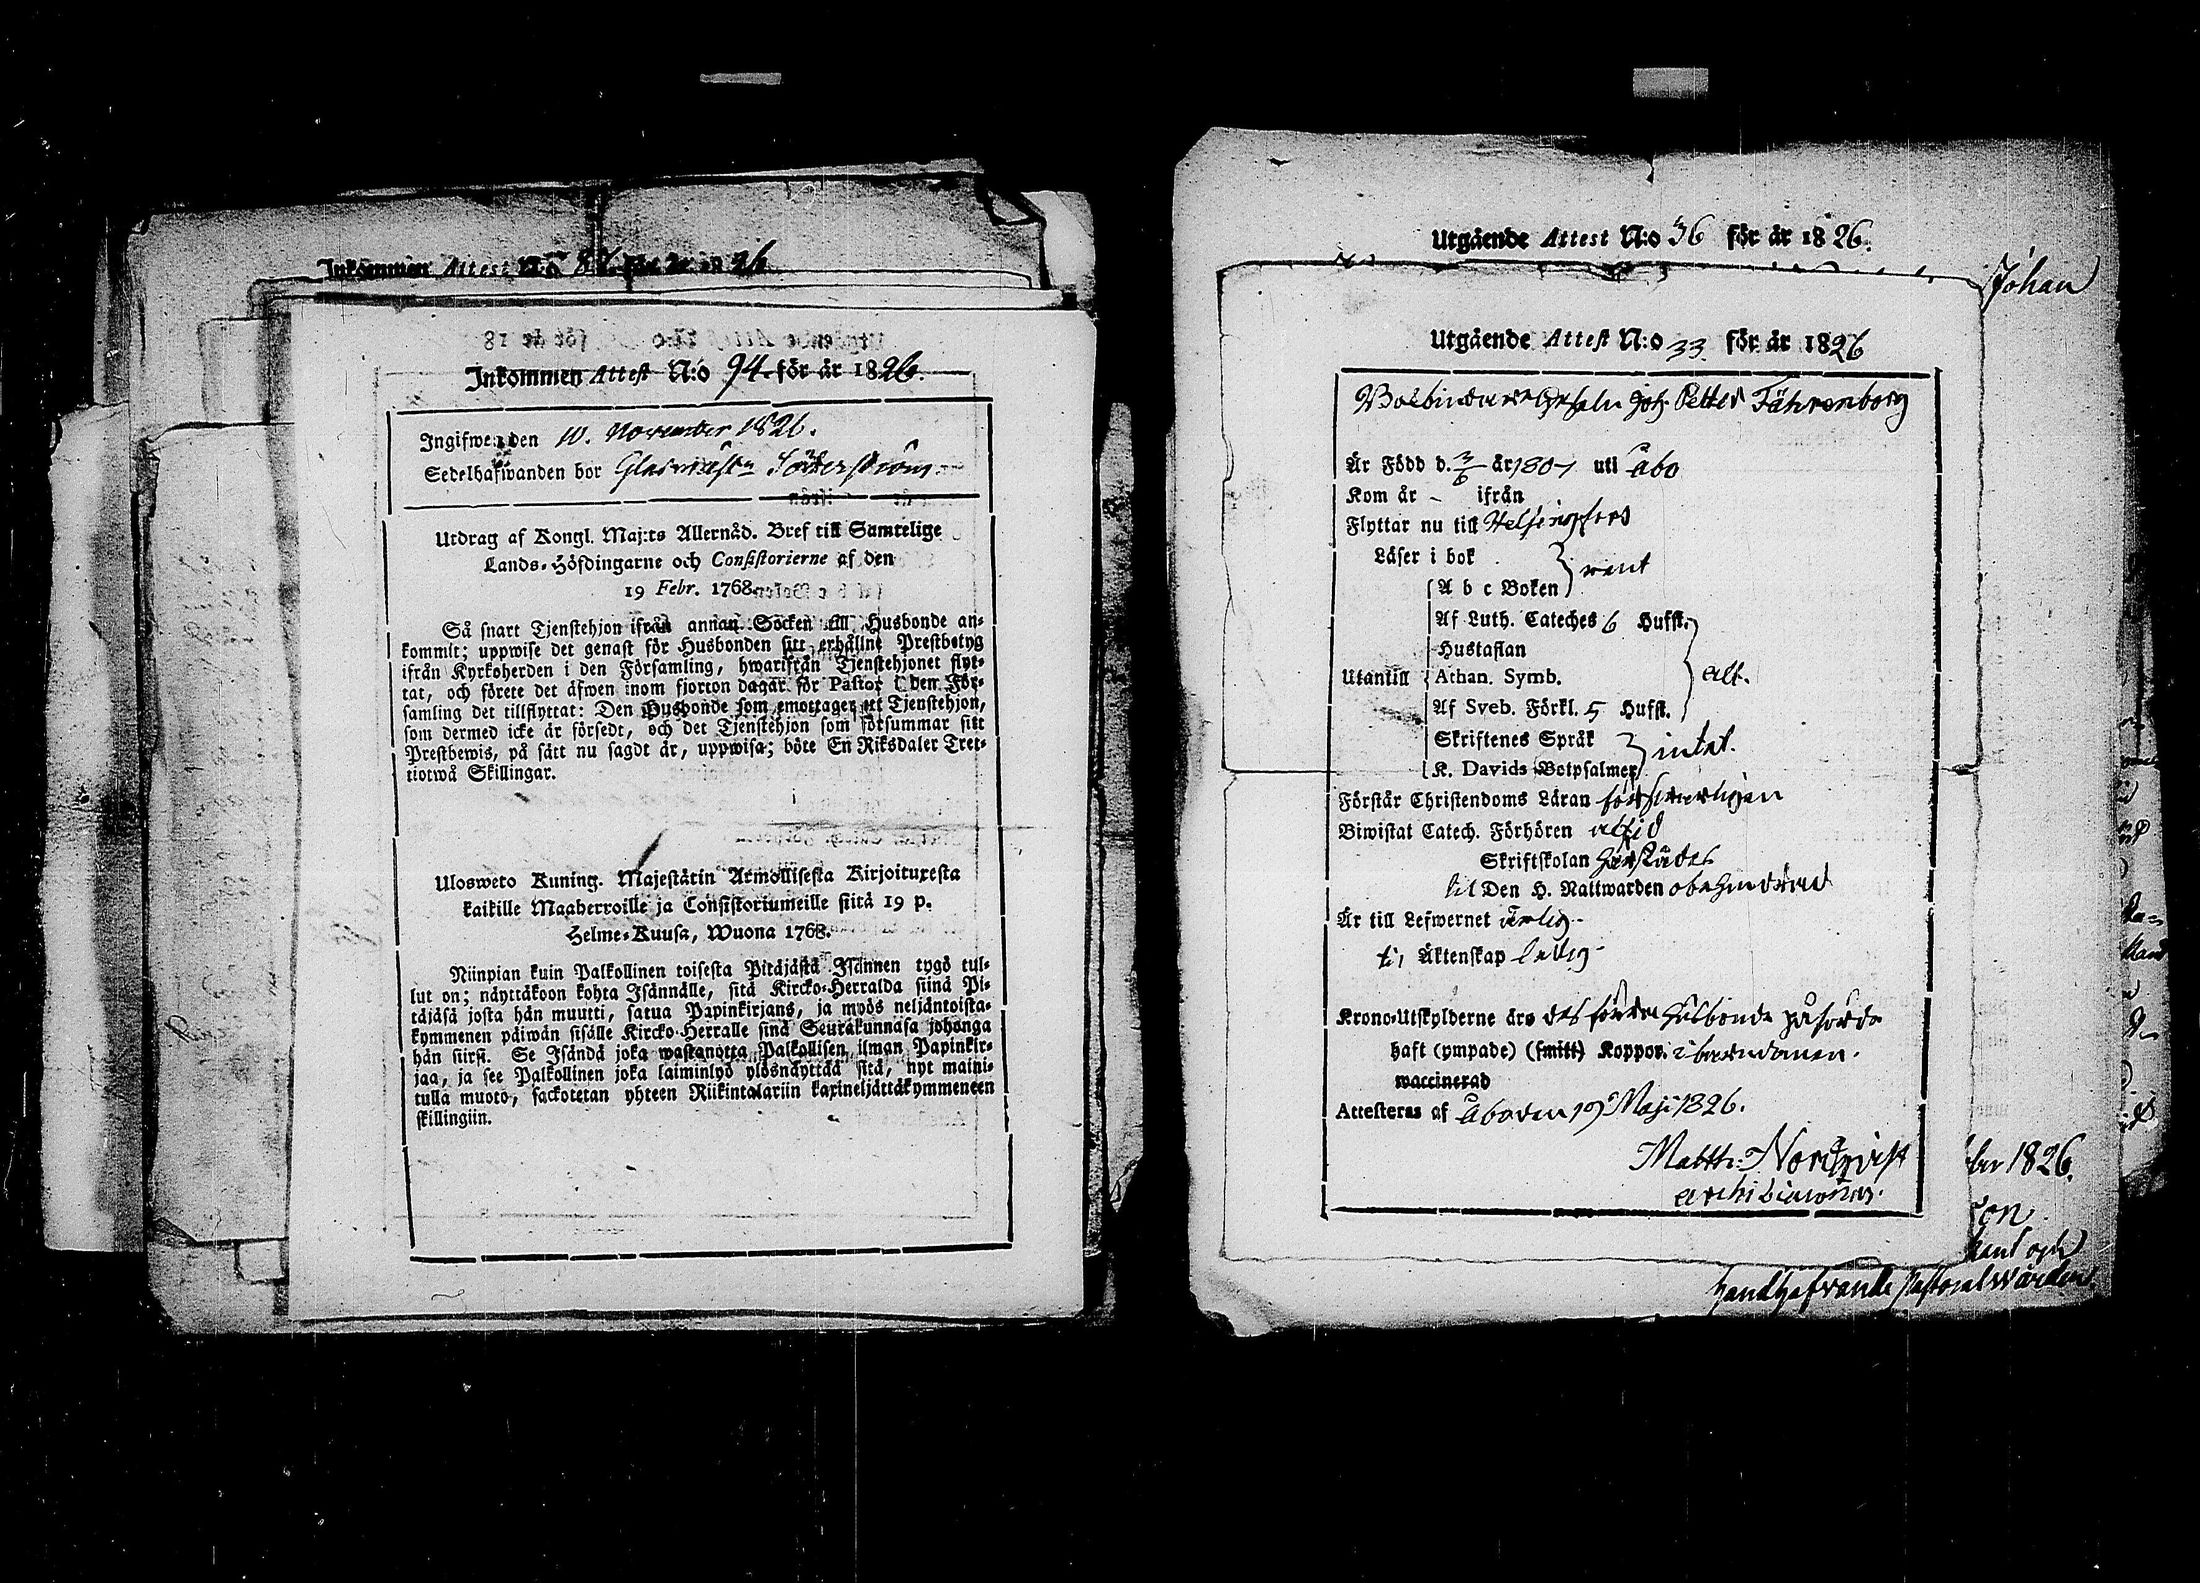 Inkommen Attest N:o 87 för år 1826
Inkommen Attest N:o 94. för år 1826.
Ingifwen den 10. November 1826.
Sedelhafwanden bor Glasmäst: Söderström.
Utdrag af Kongl. Maj:ts Allernåd. Bref till Samtelige
Lands-Höfdingarne och Consistorierne af den
19 Febr. 1768.
Så snart Tjenstehjon ifrån annan Socken till Husbonde an-
kommit; uppwise det genast för Husbonden sitt erhållne Prestbetyg
ifrån Kyrkoherden i den Församling, hwarifrån Tjenstehjonet flyt-
tat, och förete det äfwen inom fjorton dagar för Pastor i den För-
samling det tillflyttat: Den Husbonde som emottager ett Tjenstehjon,
som dermed icke är försedt, och det Tjenstehjon som försummar sitt
Prestbewis, på sätt nu sagdt är, uppwisa; böte En Riksdaler Tret-
tiotwå Skillingar.
Ulosweto Kuning. Majestätin Armollisesta Kirjoituxesta
kaikille Maaherroille ja Consistoriumeille siitä 19 p.
Helme-Kuusa, Wuona 1768.
Niinpian kuin Palkollinen toisesta Pitäjästä Isännen tygö tul-
lut on; näyttäkoon kohta Isännälle, sitä Kircko-Herralda siinä Pi-
täjäsä josta hän muutti, saatua Papinkirjans, ja myös neljäntoista-
kymmenen päiwän sisälle Kircko-Herralle sinä Seurakunnasa johonga
hän siirsi. Se Isändä joka wastanotta Palkollisen ilman Papinkir-
jaa, ja see Palkollinen joka laiminlyö ylösnäyttää sitä, nyt maini-
tulla muoto, sackotetan yhteen Riikintalariin kaxineljättäkymmeneen
skillingiin.
Utgående Attest N:o 36 för år 1826.
Johan
Utgående Attest N:o 33 för år 1826
Bokbindare Gesäln Joh. Petter Fährenborg
Är Född d. 3/6 år 1807 uti Åbo
Kom år - ifrån
Flyttar nu till Helsingfors
Läser i bok
A b c Boken } rent
Af Luth. Cateches 6 Hufst.
Hustaflan
Utantill Athan. Symb. } alt.
Af Sveb. Förkl. 5 Hufst.
Skriftenes Språk
K. Davids Botpsalmer } intet.
Förstår Christendoms Läran försvarligen
Biwistat Catech. Förhören altid
Skriftskolan
til Den H. Nattwarden obehindrad
Är till Lefwernet ärlig
til Äktenskap ledig
Krono-Utskylderne äro des förra Husbonde påförde
haft (ympade) (smitt) Koppor i barndomen.
waccinerad
Attesteras af Åbo den 19 Maji 1826.
Matth: Nordqvist
Archidiaconus.
ber 1826.
handhafvande Pastoralvården